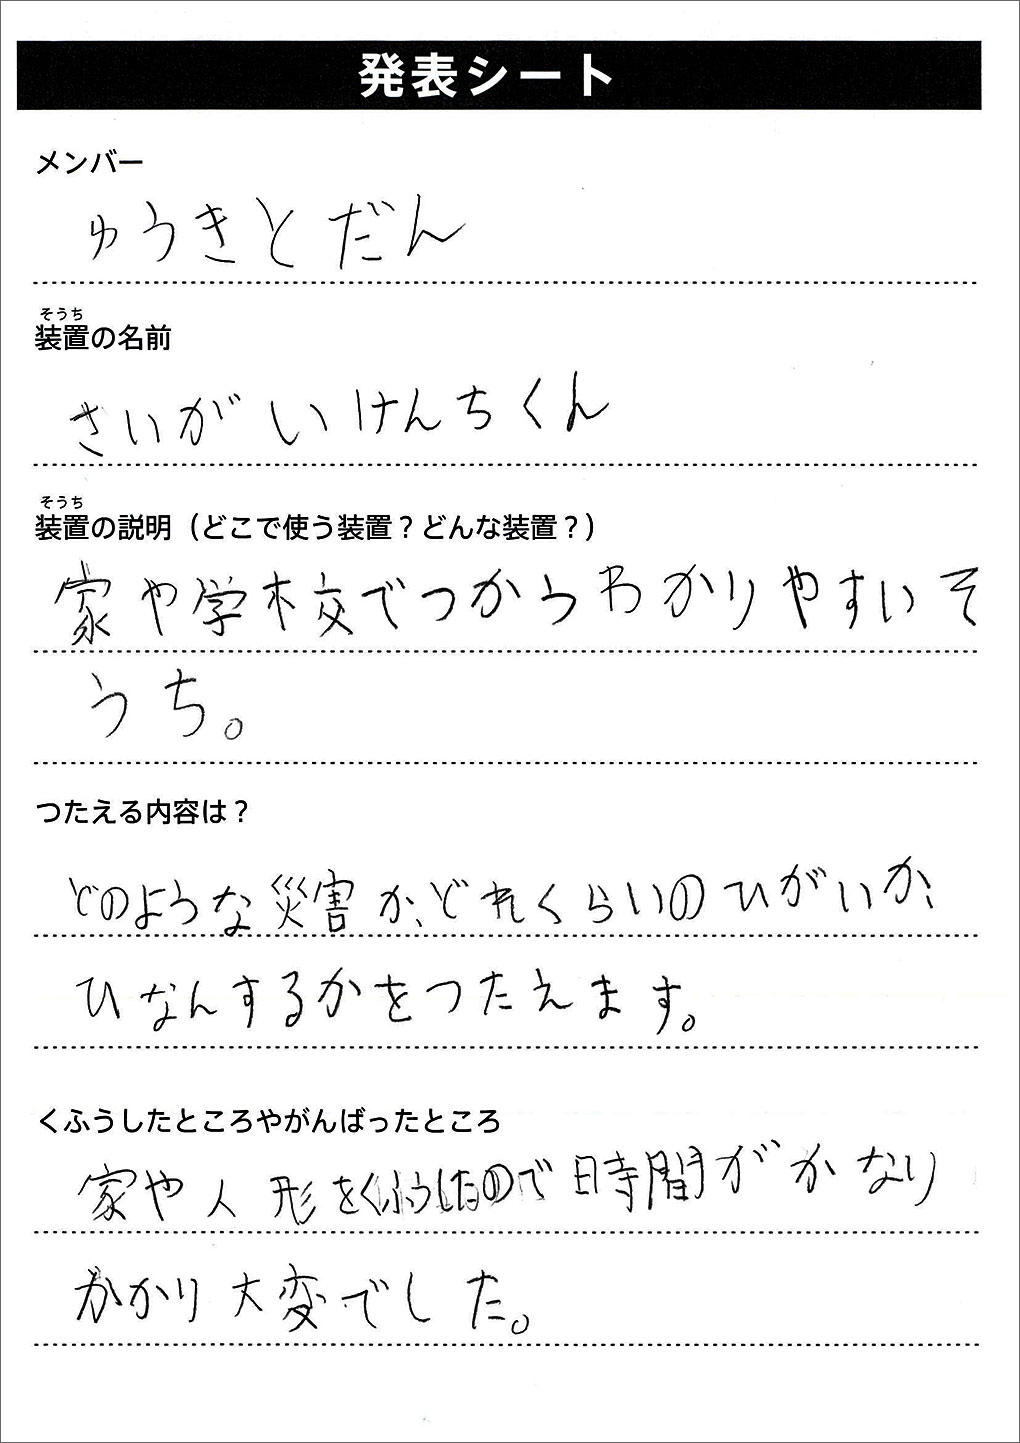 発表シート
メンバー
ゆうきとだん
そうち
装置の名前
さいがいけんちくん
そうち
装置の説明（どこで使う装置？どんな装置？）
家や学校でつかうわかりやすいそ
うち。
つたえる内容は？
どのような災害か、どれくらいのひがいか、
ひなんするかをつたえます。
くふうしたところやがんばったところ
家や人形をくふうしたので時間がかなり
かかり大変でした。